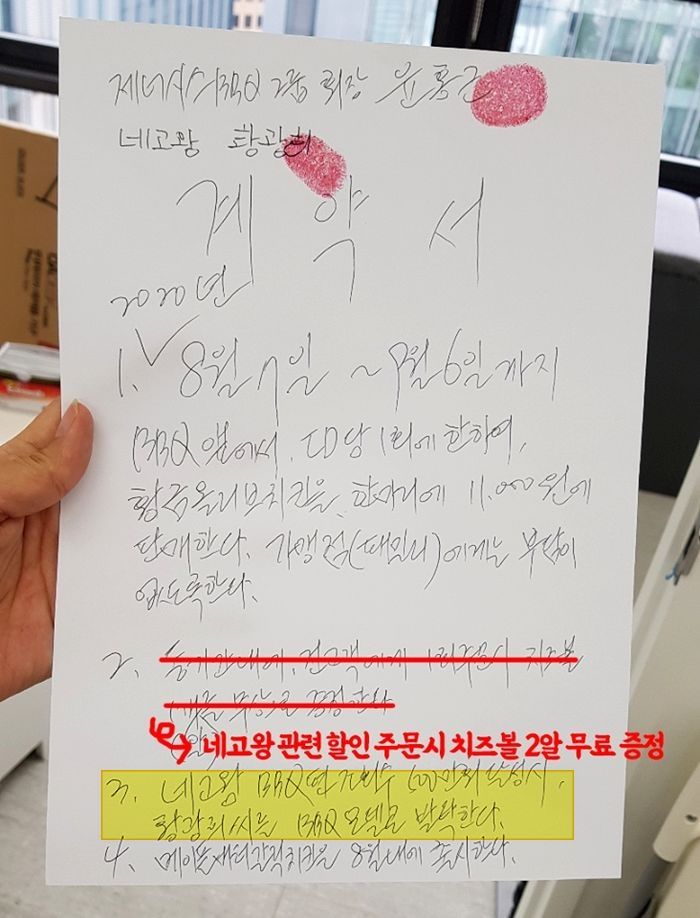 제너시스BBQ 그룹 회장 윤홍근
네고왕 황광희
계약서
2020년
1. 8월 7일 ~ 9월 6일까지
BBQ 앱에서, ID당 1회에 한하여,
황금올리브치킨을, 한마리에 11,000원에
판매한다. 가맹점(패밀리)에게는 부담이
없도록한다.
2. 동기간내에, 전고객에게 1회주문시 치즈볼
무상으로 증정한다
네고왕 관련 할인 주문시 치즈볼 2알 무료 증정
3. 네고왕 BBQ편 100만회 달성시,
황광희씨를 BBQ모델로 발탁한다.
4. 메이플버터갈릭치킨을 8월내에 출시한다.